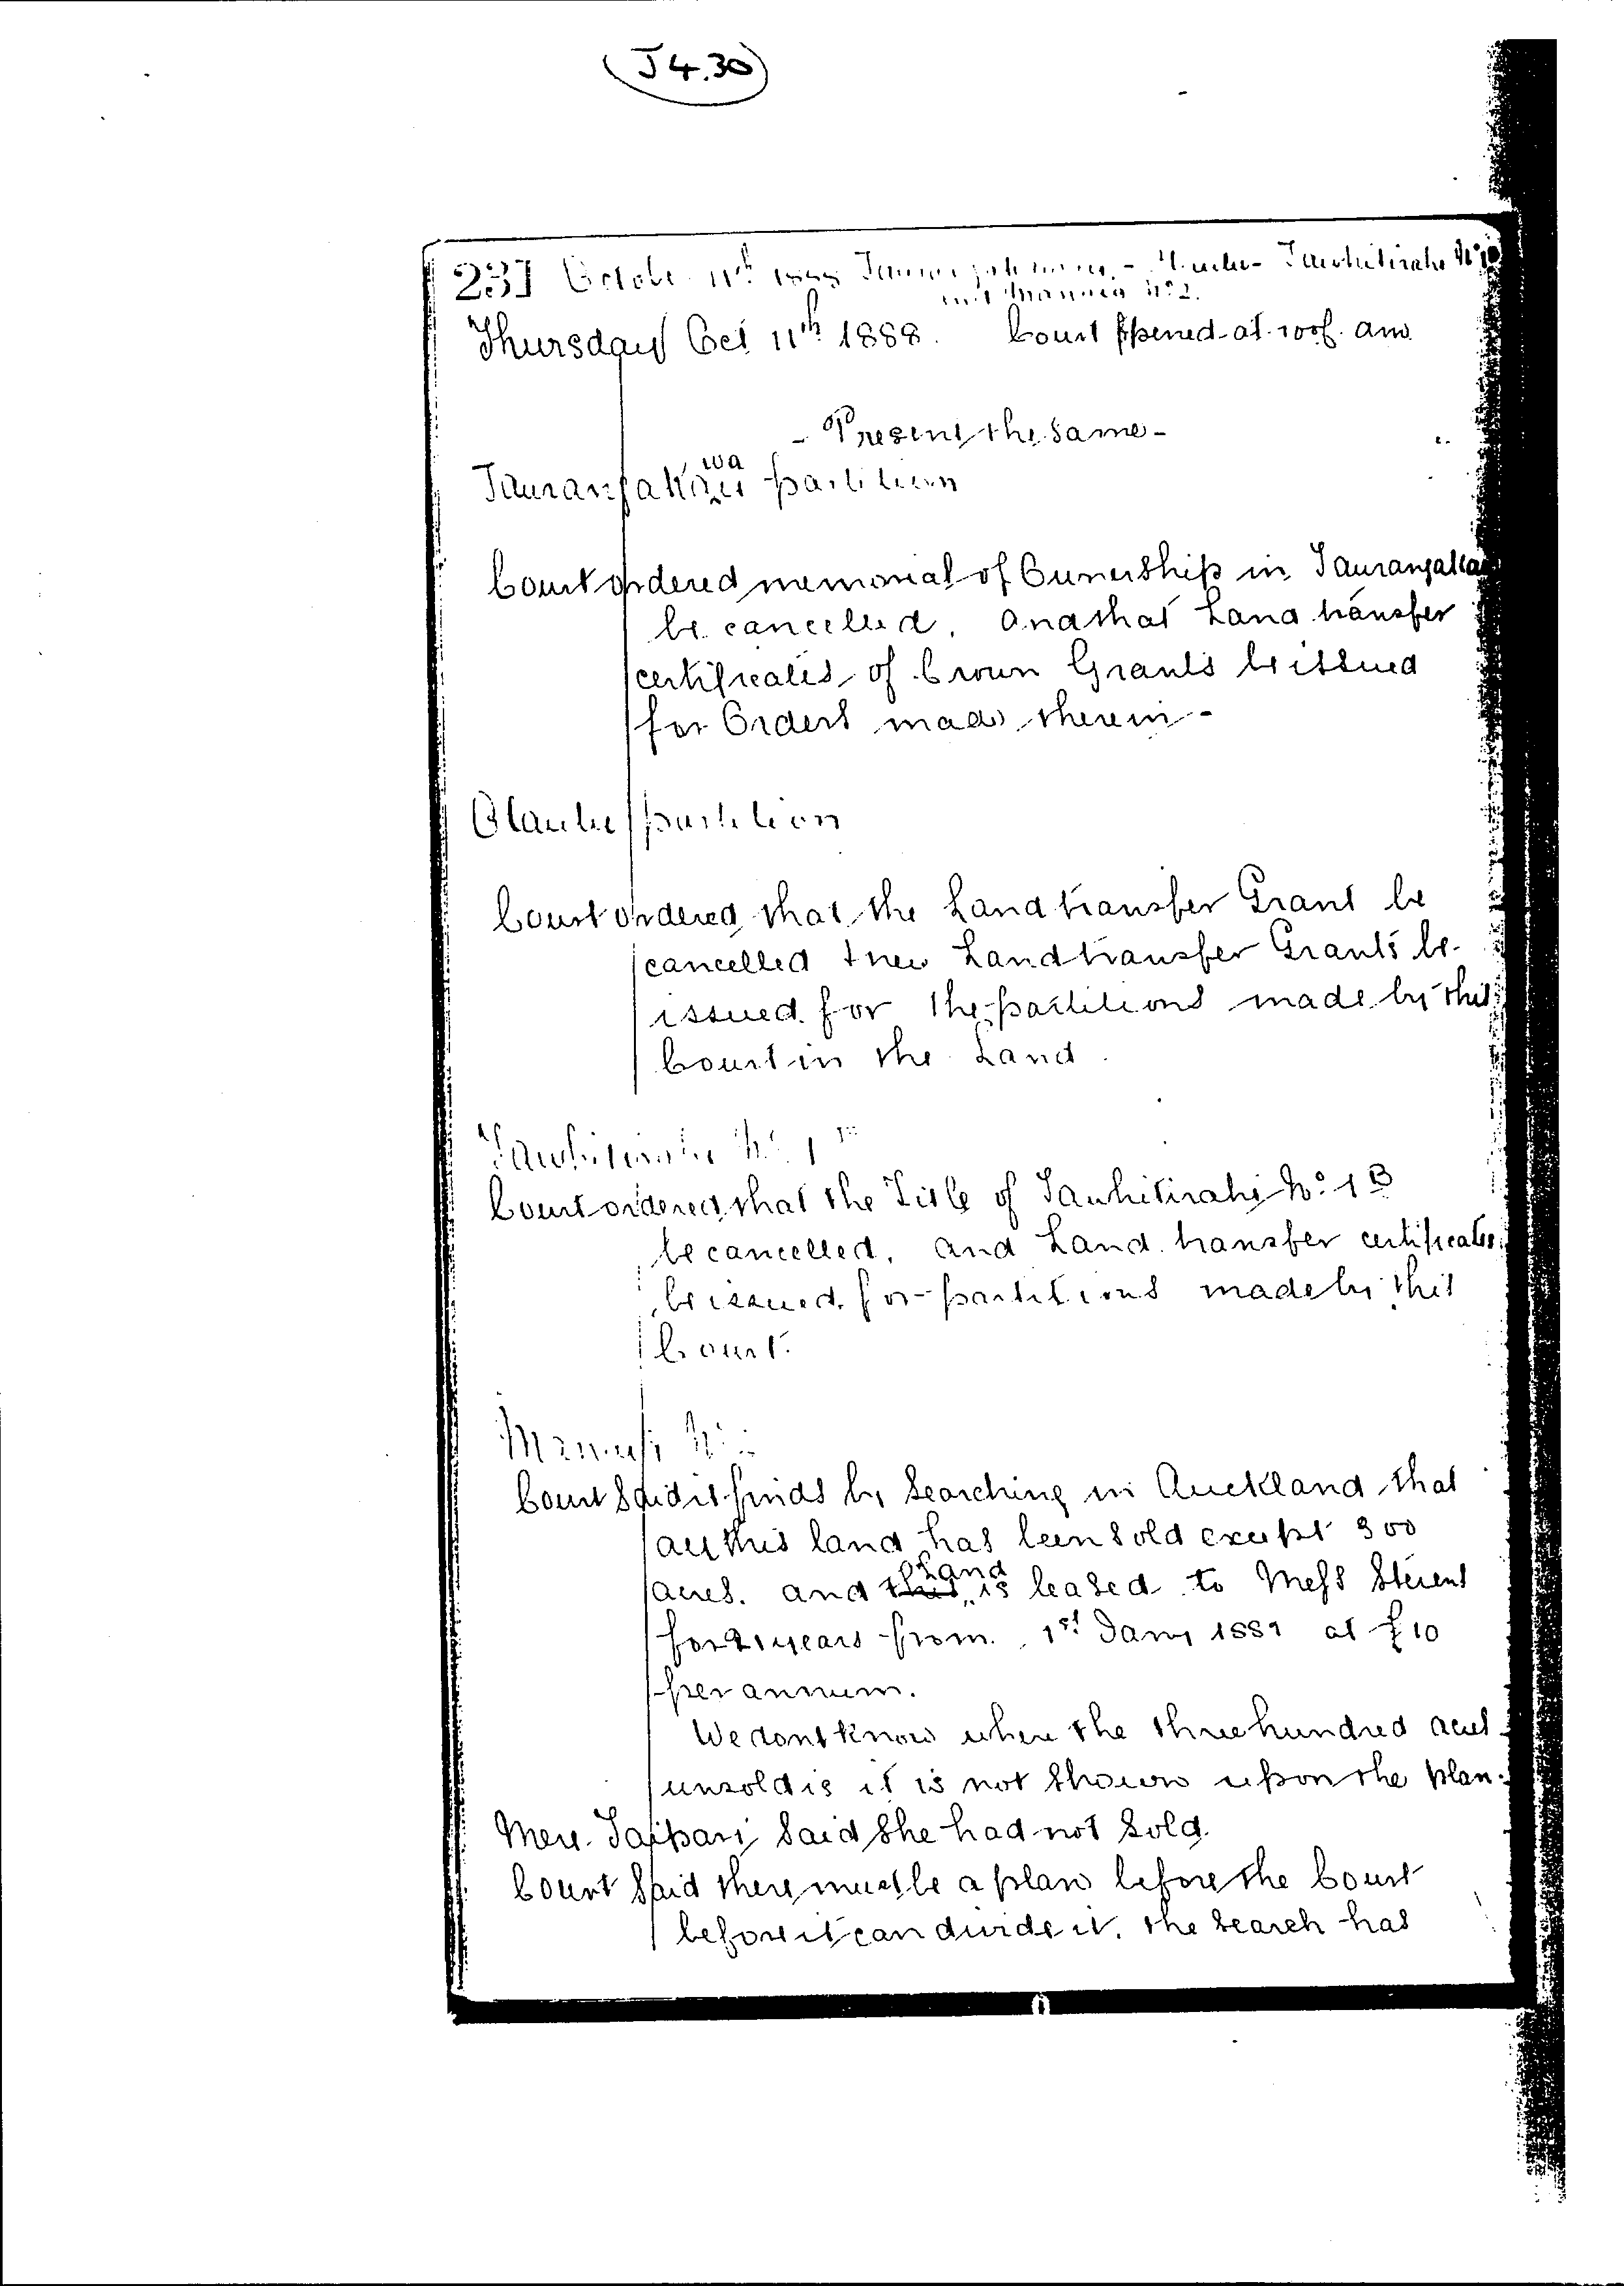 J4.30
237 October 11th 1888 Tawhitirahi No 1B
and No 2.
Thursday Oct 11th 1888. Court opened at am
- Present the same -
Taurangakawau wa partition
Court ordered memorial of Ownership in Taurangakawau
be cancelled. And that Land transfer
certificates of Crown Grants be issued
for Orders made therein -
Otautu partition
Court ordered that the Land transfer Grant be
cancelled & new Land transfer Grants be
issued for the partitions made by this
Court in the Land.
Tawhitirahi No. 1B
Court ordered that the Title of Tauhitirahi No. 1B
be cancelled, and Land transfer certificates
be issued for partitions made by this
Court.
Court said it finds by searching in Auckland that
all this land has been sold except 300
Land
acres. and this is leased to Mess Stevens
for 21 years from 1st Jany 1881 at £10
per annum.
We dont know where the three hundred acres
unsold is it is not shown upon the plan.
Mere Taipari said she had not sold.
Court said there must be a plan before the Court
before it can divide it. the search has